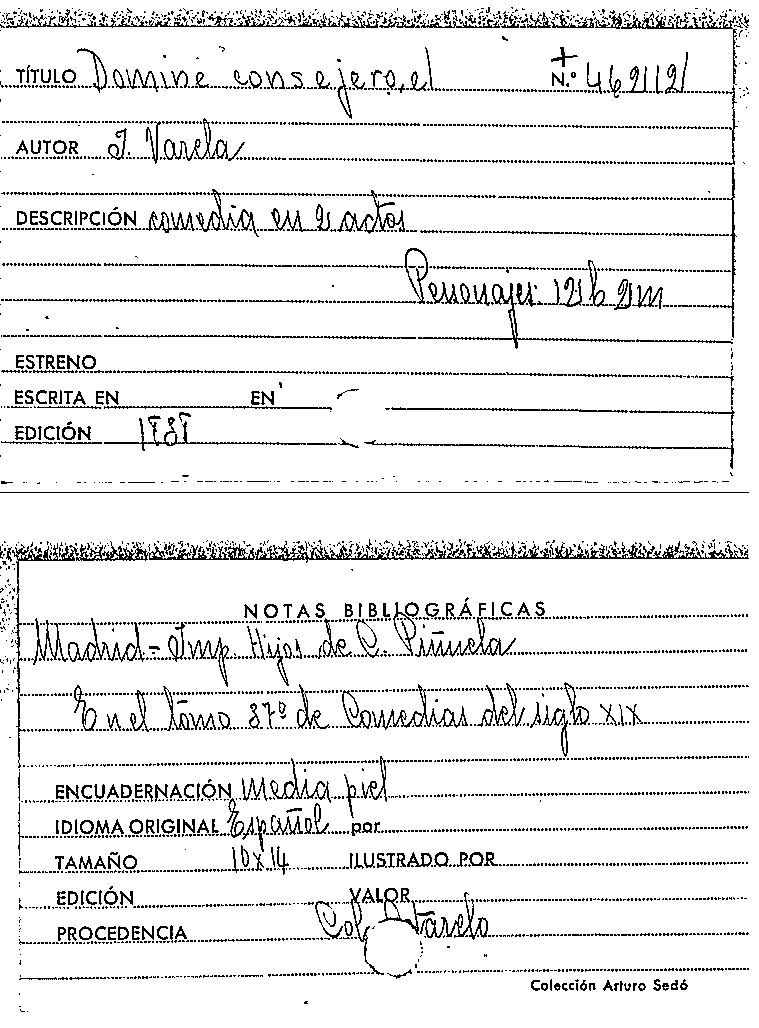 TÍTULO Dominé consejero, el + N.º 462121
AUTOR J. Varela
DESCRIPCIÓN comedia en 2 actos
Personajes: 12h 2m
ESTRENO
ESCRITA EN EN
EDICIÓN
NOTAS BIBLIOGRÁFICAS
Madrid = Imp. Hijos de C. Piñuela
En el tomo 87º de Comedias del siglo XIX
ENCUADERNACIÓN media piel
IDIOMA ORIGINAL Español por
TAMAÑO 10x14 ILUSTRADO POR
EDICIÓN VALOR
PROCEDENCIA Col.
Colección Arturo Sedó